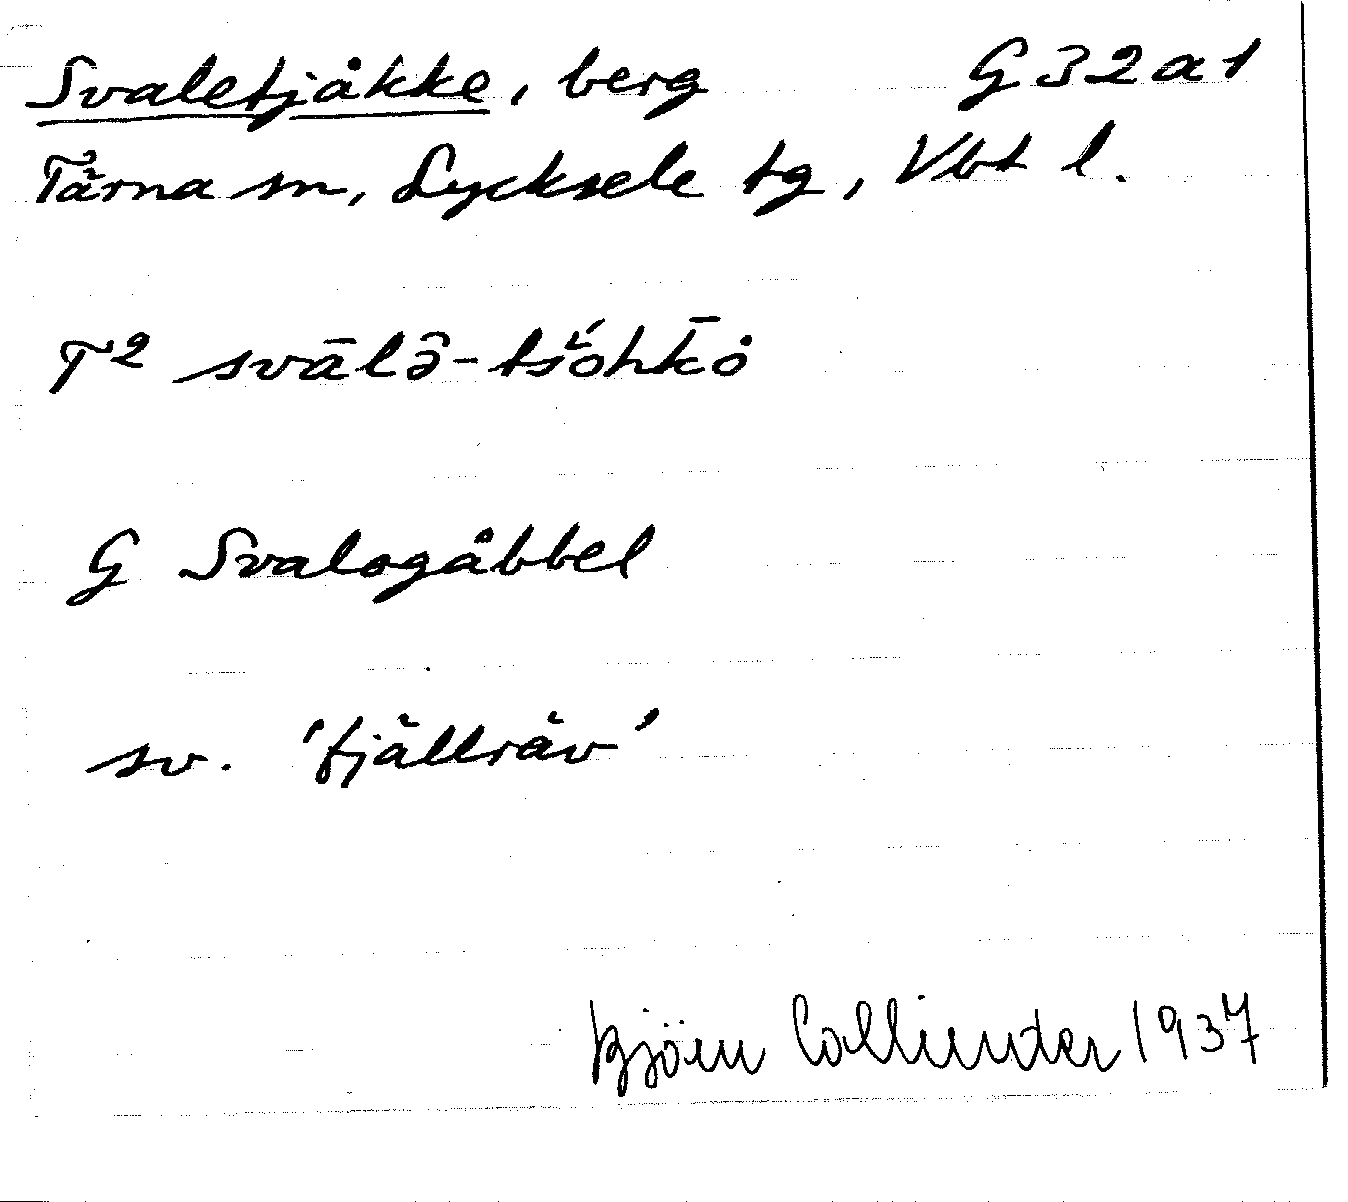 Svaletjåkke, berg G32a1
Tärna sn, Lycksele tg, Vbt l.
T² svālə̂-tśŏ́hk̄ȯ
G Svalogåbbel
sv. 'fjällräv'
Björn Collinder 1937